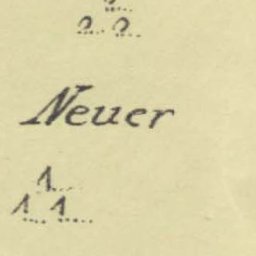 2
2 2
Neuer
1
1 1